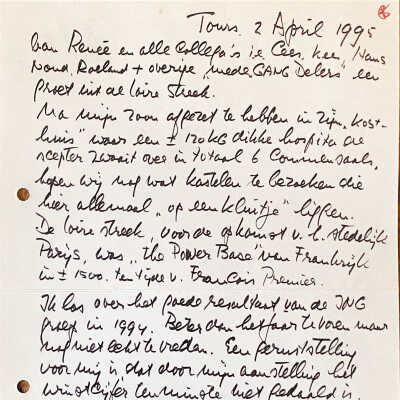 Tours, 2 April 1995
Van Renée en alle collega's i.e. Cees, Kees, Hans
Noud, Roeland + overige "mede GANG Delers" een
groet uit de Loire streek.
Na mijn zoon afgezet te hebben in zijn "kost-
huis" waar een ± 120 KG dikke hospita de
scepter zwaait over in totaal 6 commensaals,
hopen wij nog wat kastelen te bezoeken die
hier allemaal "op een kluitje" liggen.
De Loire streek, voor de opkomst v. h. stedelijk
Parijs, was "the Power Base" van Frankrijk
in ± 1500. ten tijde v. Francois Premier.
Ik las over het goede resultaat van de ING
groep in 1994. Beter dan het jaar te voren maar
nog niet echt te vreden. Een geruststelling
voor mij is dat door mijn aanstelling het
winstcijfer tenminste niet gedaald is.